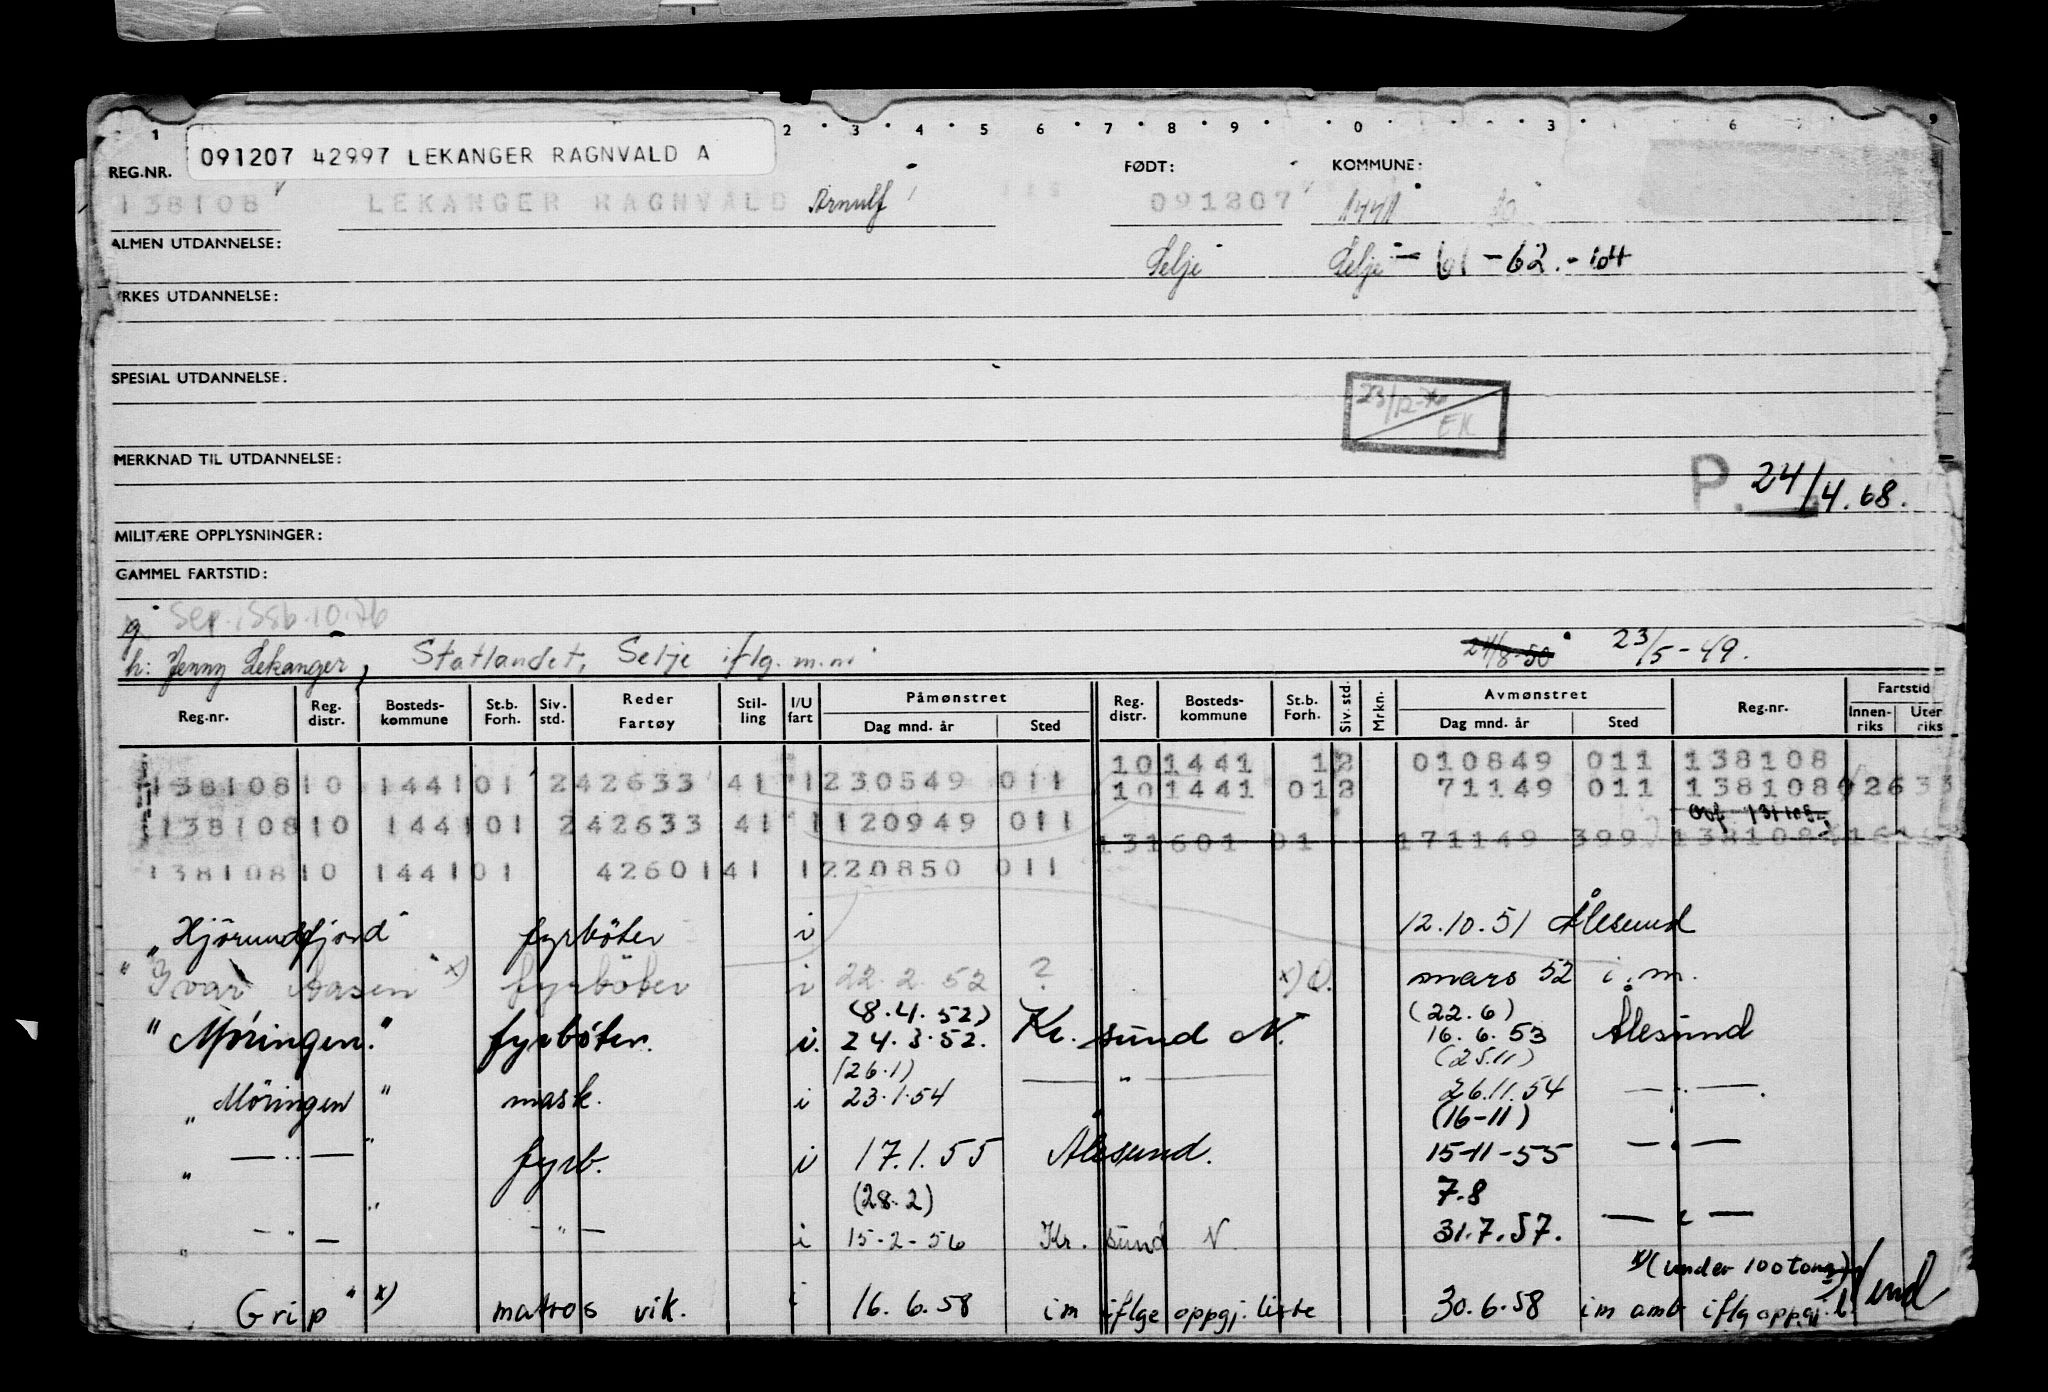 1 2 3 4 5 6 7 8 9 0 3 6 9
091207 42997 LEKANGER RAGNVALD A
REG.NR. FØDT: KOMMUNE:
138108 LEKANGER RAGNVALD Arnulf 091207 1441
ALMEN UTDANNELSE: Selje Selje - 61 - 62. - 64
YRKES UTDANNELSE:
SPESIAL UTDANNELSE:
23/12-76
EK
MERKNAD TIL UTDANNELSE:
P. 24/4.68.
MILITÆRE OPPLYSNINGER:
GAMMEL FARTSTID:
g Sep. i Ssb. 10.76
h: Jenny Lekanger, Statlandet, Selje iflg. m.m. 24/8-50 23/5-49.
Reg.nr. Reg. distr. Bosteds-kommune St.b. Forh. Siv. std. Reder Fartøy Stil-ling I/U fart Påmønstret Dag mnd. år Sted Reg. distr. Bosteds-kommune St.b. Forh. Siv. std. Mrkn. Avmønstret Dag mnd. år Sted Reg.nr. Fartstid Innen-riks Uten riks
101441 12 010849 011 138108
138108 10 1441 01 242633 41 1 230549 011 101441 012 71149 011 138108 02633
138108 10 1441 01 242633 41 1 120949 011
131601 01 171149 399 138108
138108 10 1441 01 42601 41 1 220850 011
"Hjørundfjord" fyrbøter i 12.10.51 Ålesund
"Ivar Aasen" x) fyrbøter i 22.2.52 ? x) O. mars 52 i.m.
(8.4.52) (22.6)
"Møringen." fyrbøter. i. 24.3.52. Kr. sund N. 16.6.53 Ålesund
(26.1) (25.11)
"Møringen" mask. i 23.1.54 — " — 26.11.54 — " —.
(16-11)
" — " — " fyrb. i 17.1.55 Ålesund. 15-11-55 — " —
(28.2) 7.8
" — " — " — " — i 15-2-56 Kr. sund N. 31.7.57. — " —
x) (under 100 tonn)
Grip" x) matros vik. i 16.6.58 im iflge oppgj. liste 30.6.58 im amb iflg oppgj. l.